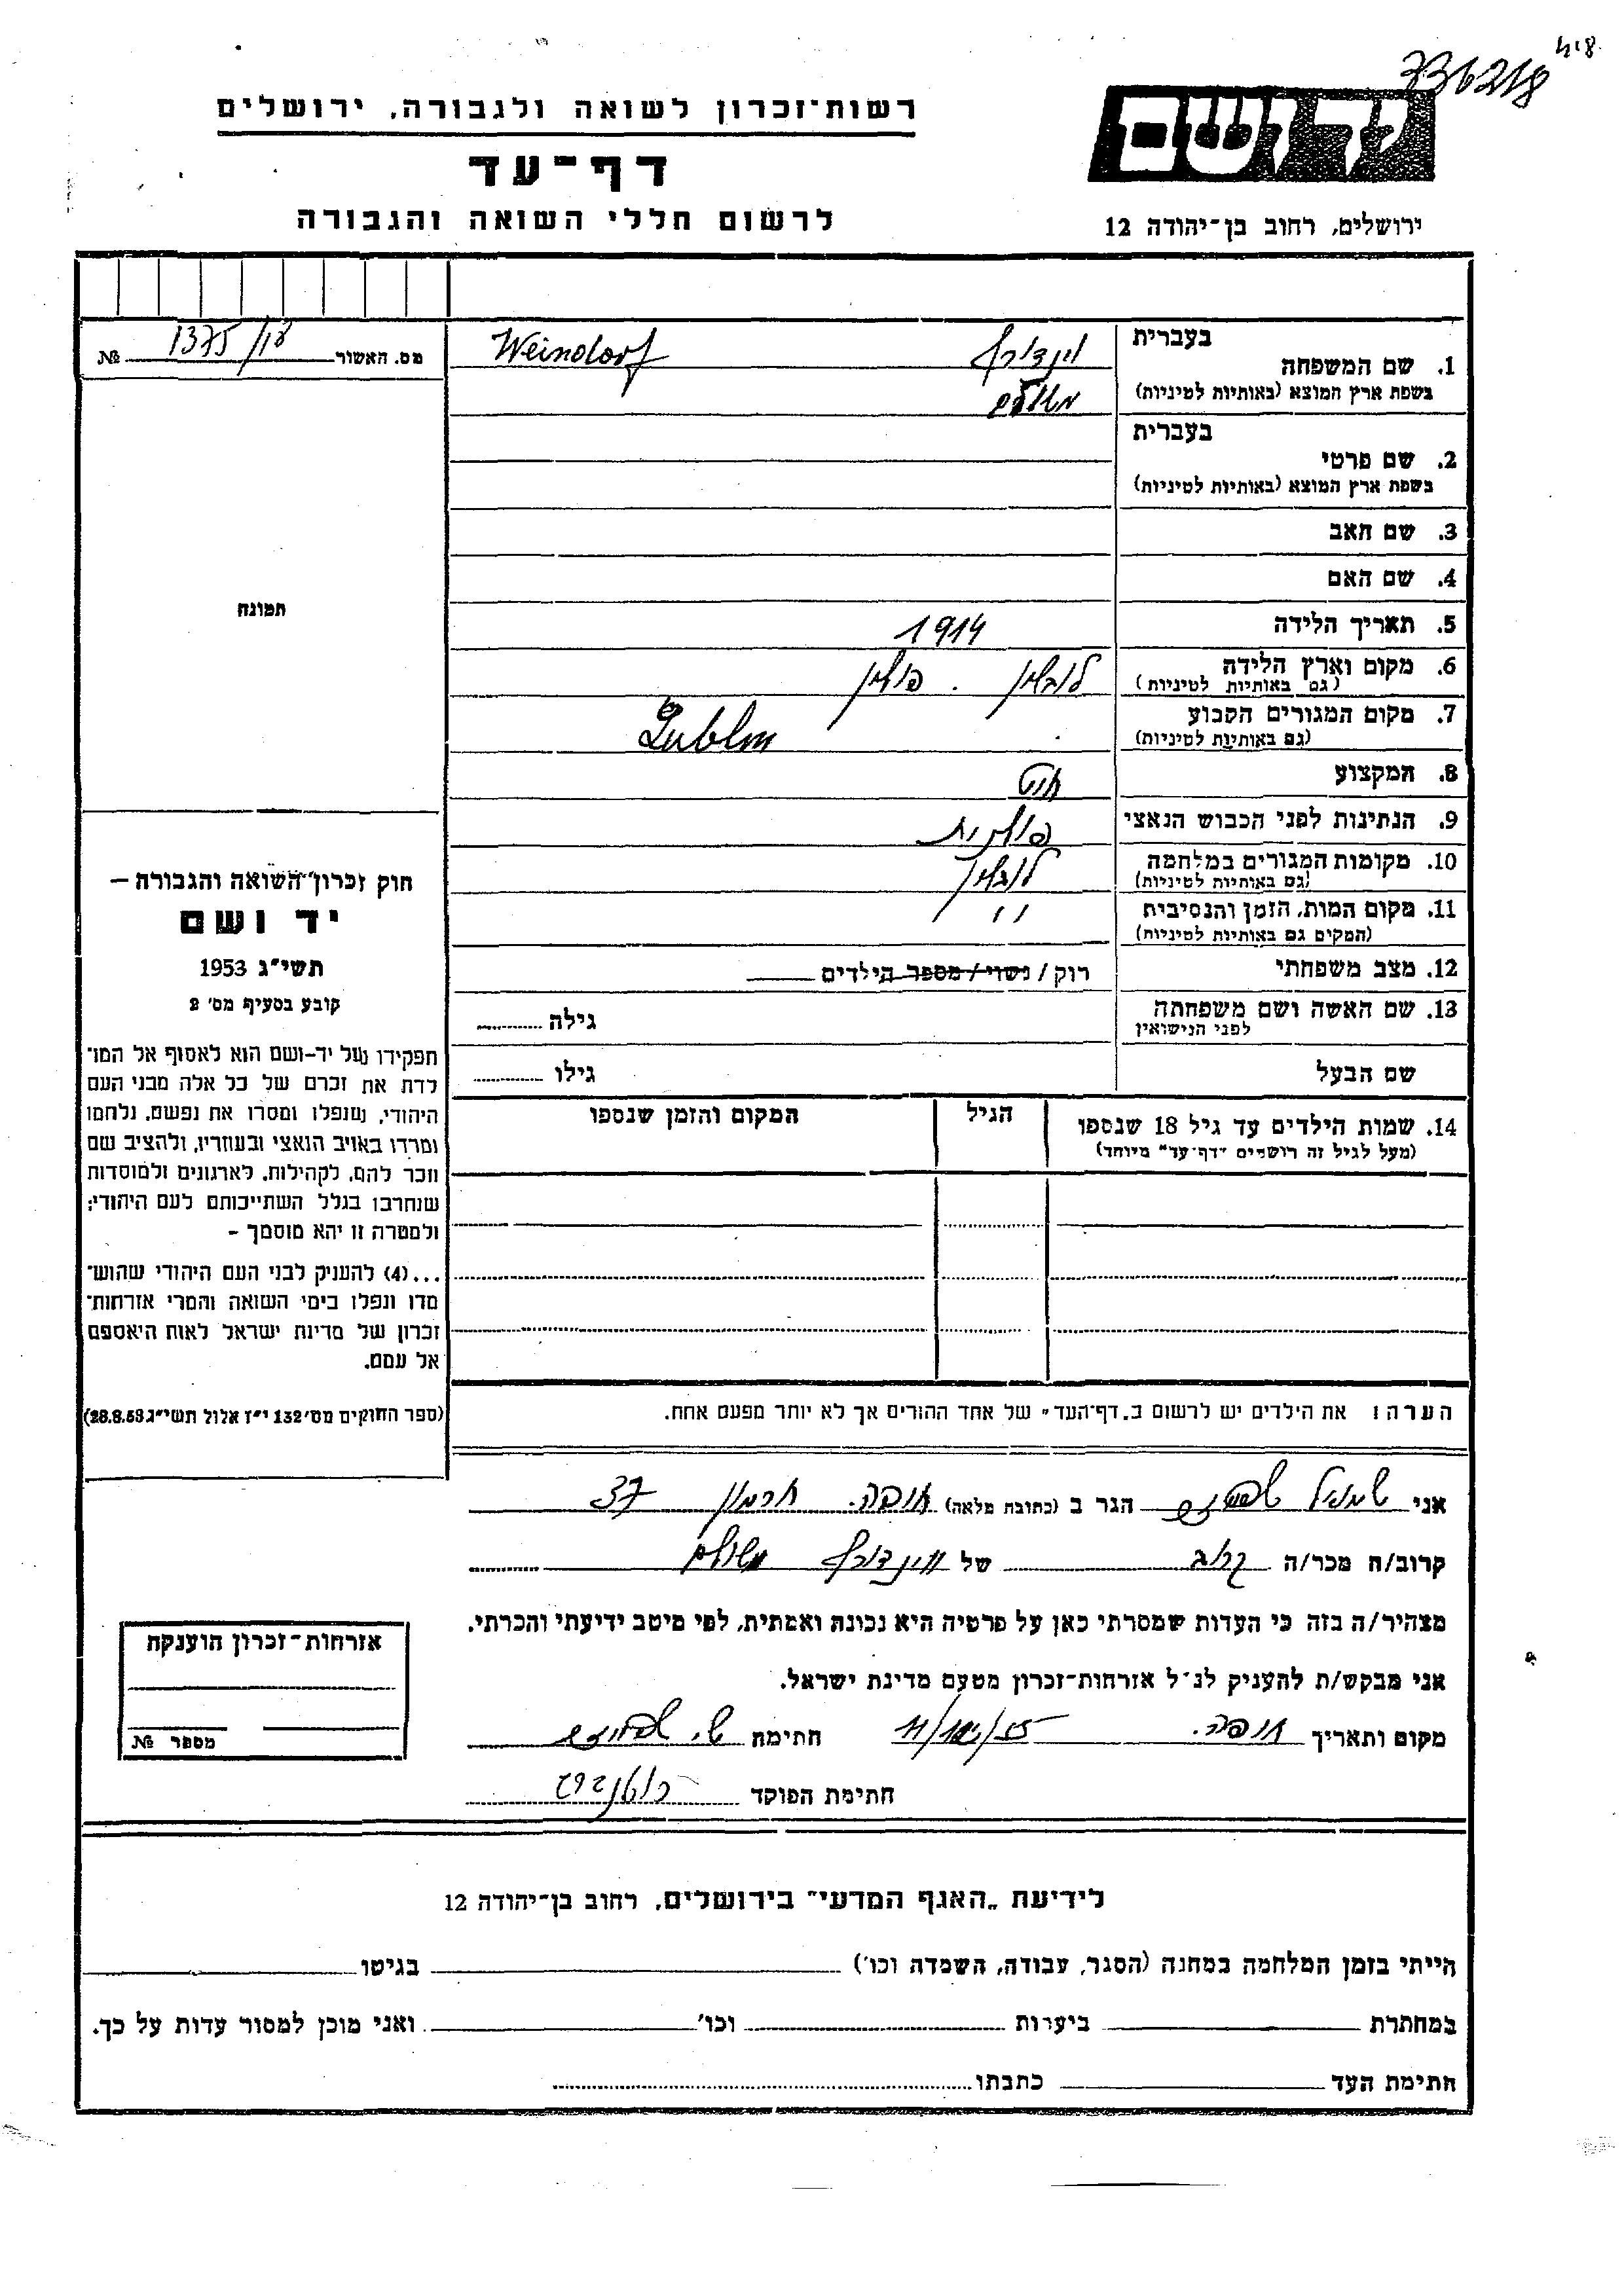 736218
418
יד ושם
ירושלים, רחוב בן־יהודה 12
רשות־זכרון לשואה ולגבורה, ירושלים
דף־עד
לרשום חללי השואה והגבורה
מס. האשור 1375/ № 
בעברית
1. שם המשפחה
בשפת ארץ המוצא (באותיות לטיניות)
וינדורף Weindorf
משולם
בעברית
2. שם פרטי
בשפת ארץ המוצא (באותיות לטיניות)
3. שם האב
4. שם האם
5. תאריך הלידה 1914
6. מקום וארץ הלידה לובלין. פולין
(גם באותיות לטיניות)
7. מקום המגורים הקבוע Lublin
(גם באותיות לטיניות)
8. המקצוע חיט
9. הנתינות לפני הכבוש הנאצי פולנית
10. מקומות המגורים במלחמה לובלין
(גם באותיות לטיניות)
11. מקום המות, הזמן והנסיבות ״
(המקום גם באותיות לטיניות)
12. מצב משפחתי רוק / נשוי / מספר הילדים
13. שם האשה ושם משפחתה גילה
לפני הנישואין
שם הבעל גילו
14. שמות הילדים עד גיל 18 שנספו הגיל המקום והזמן שנספו
(מעל לגיל זה רושמים "דף־עד" מיוחד)
הערה: את הילדים יש לרשום ב„דף־העד" של אחד ההורים אך לא יותר מפעם אחת.
תמונה
חוק זכרון השואה והגבורה –
יד ושם
תשי״ג 1953
קובע בסעיף מס׳ 2
תפקידו של יד-ושם הוא לאסוף אל המו־
לדת את זכרם של כל אלה מבני העם
היהודי, שנפלו ומסרו את נפשם, נלחמו
ומרדו באויב הנאצי ובעוזריו, ולהציב שם
וזכר להם, לקהילות, לארגונים ולמוסדות
שנחרבו בגלל השתייכותם לעם היהודי;
ולמטרה זו יהא מוסמך –
...(4) להעניק לבני העם היהודי שהוש־
מדו ונפלו בימי השואה והמרי אזרחות־
זכרון של מדינת ישראל לאות היאספם
אל עמם.
(ספר החוקים מס׳ 132 י״ז אלול תשי״ג 28.8.53)
אני שמואל הגר ב (כתובת מלאה) חיפה. 37
קרוב/ה מכר/ה קרוב של וינדורף משולם
מצהיר/ה בזה כי העדות שמסרתי כאן על פרטיה היא נכונה ואמתית, לפי מיטב ידיעתי והכרתי.
אני מבקש/ת להעניק לנ״ל אזרחות־זכרון מטעם מדינת ישראל.
מקום ותאריך חיפה. חתימה
חתימת הפוקד
אזרחות־זכרון הוענקה
מספר №
לידיעת „האגף המדעי" בירושלים, רחוב בן־יהודה 12
הייתי בזמן המלחמה במחנה (הסגר, עבודה, השמדה וכו׳) בגיטו
במחתרת ביערות וכו׳ ואני מוכן למסור עדות על כך.
חתימת העד כתבתו